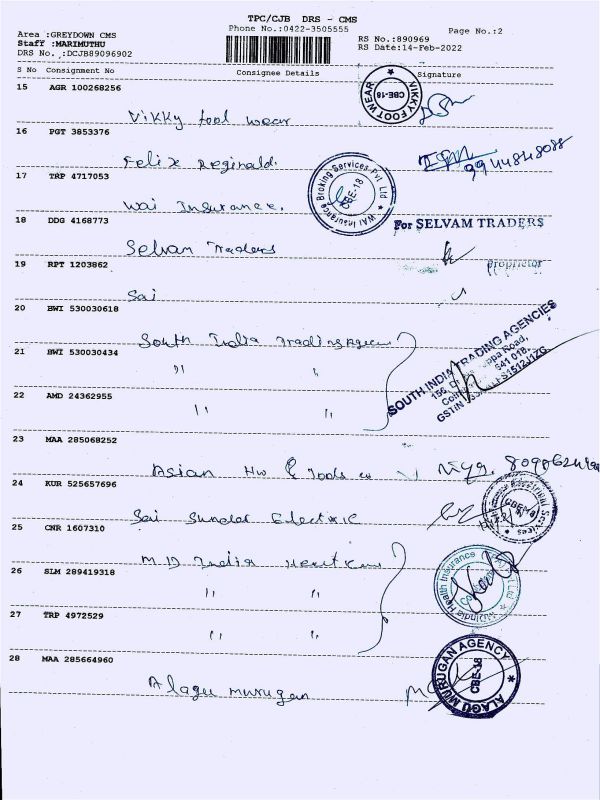 TPC/CJB DRS - CMS
Phone No.:0422-3505555
Page No.:2
Area :GREYDOWN CMS
Staff :MARIMUTHU
DRS No. :DCJB89096902
RS No.:890969
RS Date:14-Feb-2022
S No Consignment No Consignee Details Signature
15 AGR 100268256
Vikky foot wear
VIKKY FOOT WEAR CBE-18
16 PGT 3853376
Felix Reginald.
9944848088
17 TRP 4717053
Wai Insurance.
WAI Insurance Broking Services Pvt Ltd CBE-18
18 DDG 4168773
Selvam Traders
For SELVAM TRADERS
Proprietor
19 RPT 1203862
Sai
20 BWI 530030618
South India Trading Agencies
21 BWI 530030434
" "
22 AMD 24362955
" "
SOUTH INDIA TRADING AGENCIES
Road,
641 018.
23 MAA 285068252
Asian Hw & Tools
24 KUR 525657696
Sai Sundar Electric
25 CNR 1607310
M.D India
26 SLM 289419318
" "
27 TRP 4972529
" "
India Health Insurance
28 MAA 285664960
Alagu murugan
ALAGU MURUGAN AGENCY CBE-18